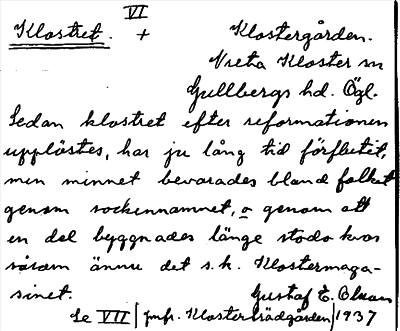 VI
Klostret. + Klostergården.
Vreta Kloster sn
Gullbergs hd. Ögl.
Sedan klostret efter reformationen
upplöstes, har ju lång tid förflutit,
men minnet bevarades bland folket
genom sockennamnet, o genom att
en del byggnader länge stodo kvar
såsom ännu det s.k. Klostermaga-
sinet. Gustaf E. Olsson
Se VII [jmf. Klosterträdgården] 1937